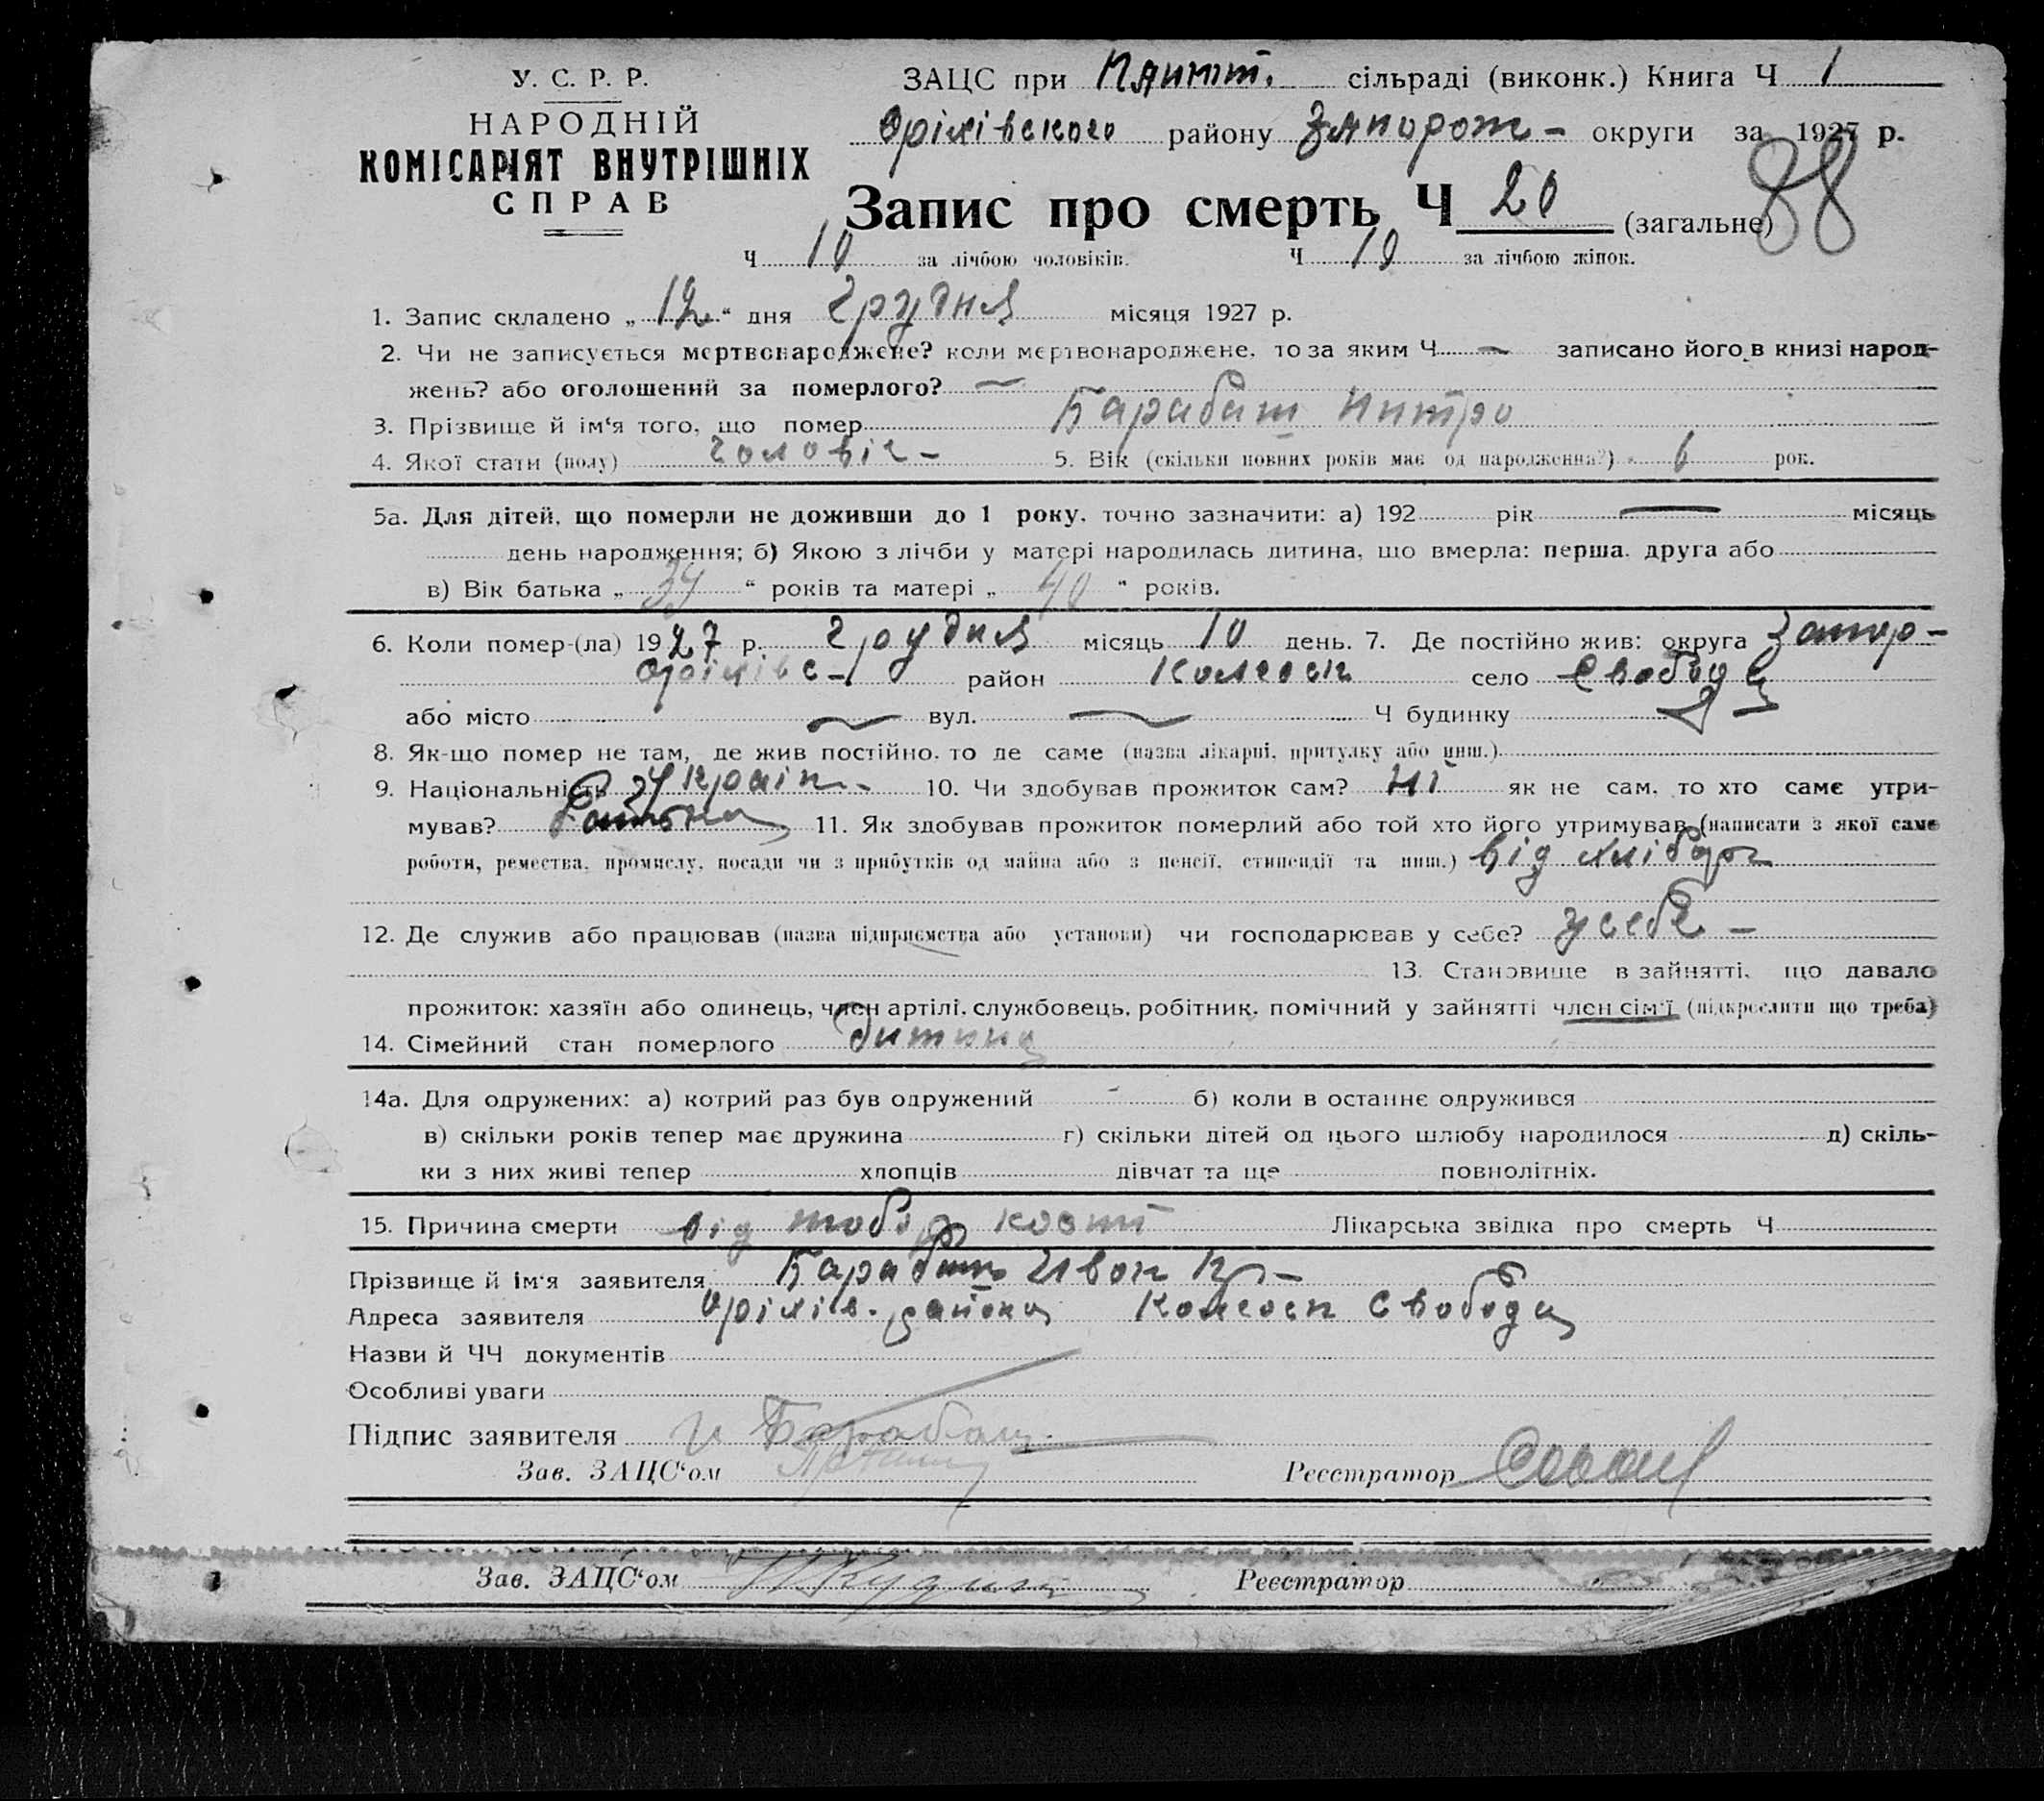 У. С. Р. Р.
НАРОДНІЙ
КОМІСАРІЯТ ВНУТРІШНІХ
СПРАВ
ЗАЦС при сільраді (виконк.) Книга Ч 1
Оріхівского району Запорож- округи за 1927 р.
88
Запис про смерть Ч 20 (загальне)
Ч 10 за лічбою чоловіків. Ч 10 за лічбою жінок.
1. Запис складено „12“ дня грудня місяця 1927 р.
2. Чи не записується мертвонароджене? коли мертвонароджене, то за яким Ч — записано його в книзі народ-
жень? або оголошений за померлого? —
3. Прізвище й ім‘я того, що помер Барабаш
4. Якої стати (полу) чоловіч- 5. Вік (скільки повних років має од народження?) 6 рок.
5а. Для дітей, що померли не доживши до 1 року, точно зазначити: а) 192 рік — місяць
день народження; б) Якою з лічби у матері народилась дитина, що вмерла: перша, друга або
в) Вік батька „39“ років та матері „40“ років.
6. Коли помер-(ла) 1927 р. грудня місяць 10 день. 7. Де постійно жив: округа Запор-
Оріхівс- район село Свобода
або місто — вул. — Ч будинку —
8. Як-що помер не там, де жив постійно, то де саме (назва лікарні, притулку або инш.)
9. Національність Україн- 10. Чи здобував прожиток сам? ні як не сам, то хто саме утри-
мував? Батько 11. Як здобував прожиток померлий або той хто його утримував (написати з якої саме
роботи, ремества, промислу, посади чи з прибутків од майна або з пенсії, стипендії та инш.) від хлібор
12. Де служив або працював (назва підприємства або установи) чи господарював у себе? у себе —
13. Становище в зайнятті, що давало
прожиток: хазяїн або одинець, член артілі, службовець, робітник, помічний у зайнятті член сім‘ї (підкреслити що треба)
14. Сімейний стан померлого дитина
14а. Для одружених: а) котрий раз був одружений - б) коли в останнє одружився
в) скільки років тепер має дружина г) скільки дітей од цього шлюбу народилося д) скіль-
ки з них живі тепер хлопців дівчат та ще повнолітніх.
15. Причина смерти від кості Лікарська звідка про смерть Ч
Прізвище й ім‘я заявителя Барабаш Иван
Адреса заявителя Оріхів. района Свобода
Назви й ЧЧ документів
Особливі уваги
Підпис заявителя И Барабаш
Зав. ЗАЦС‘ом Реєстратор
Зав. ЗАЦС‘ом Реєстратор